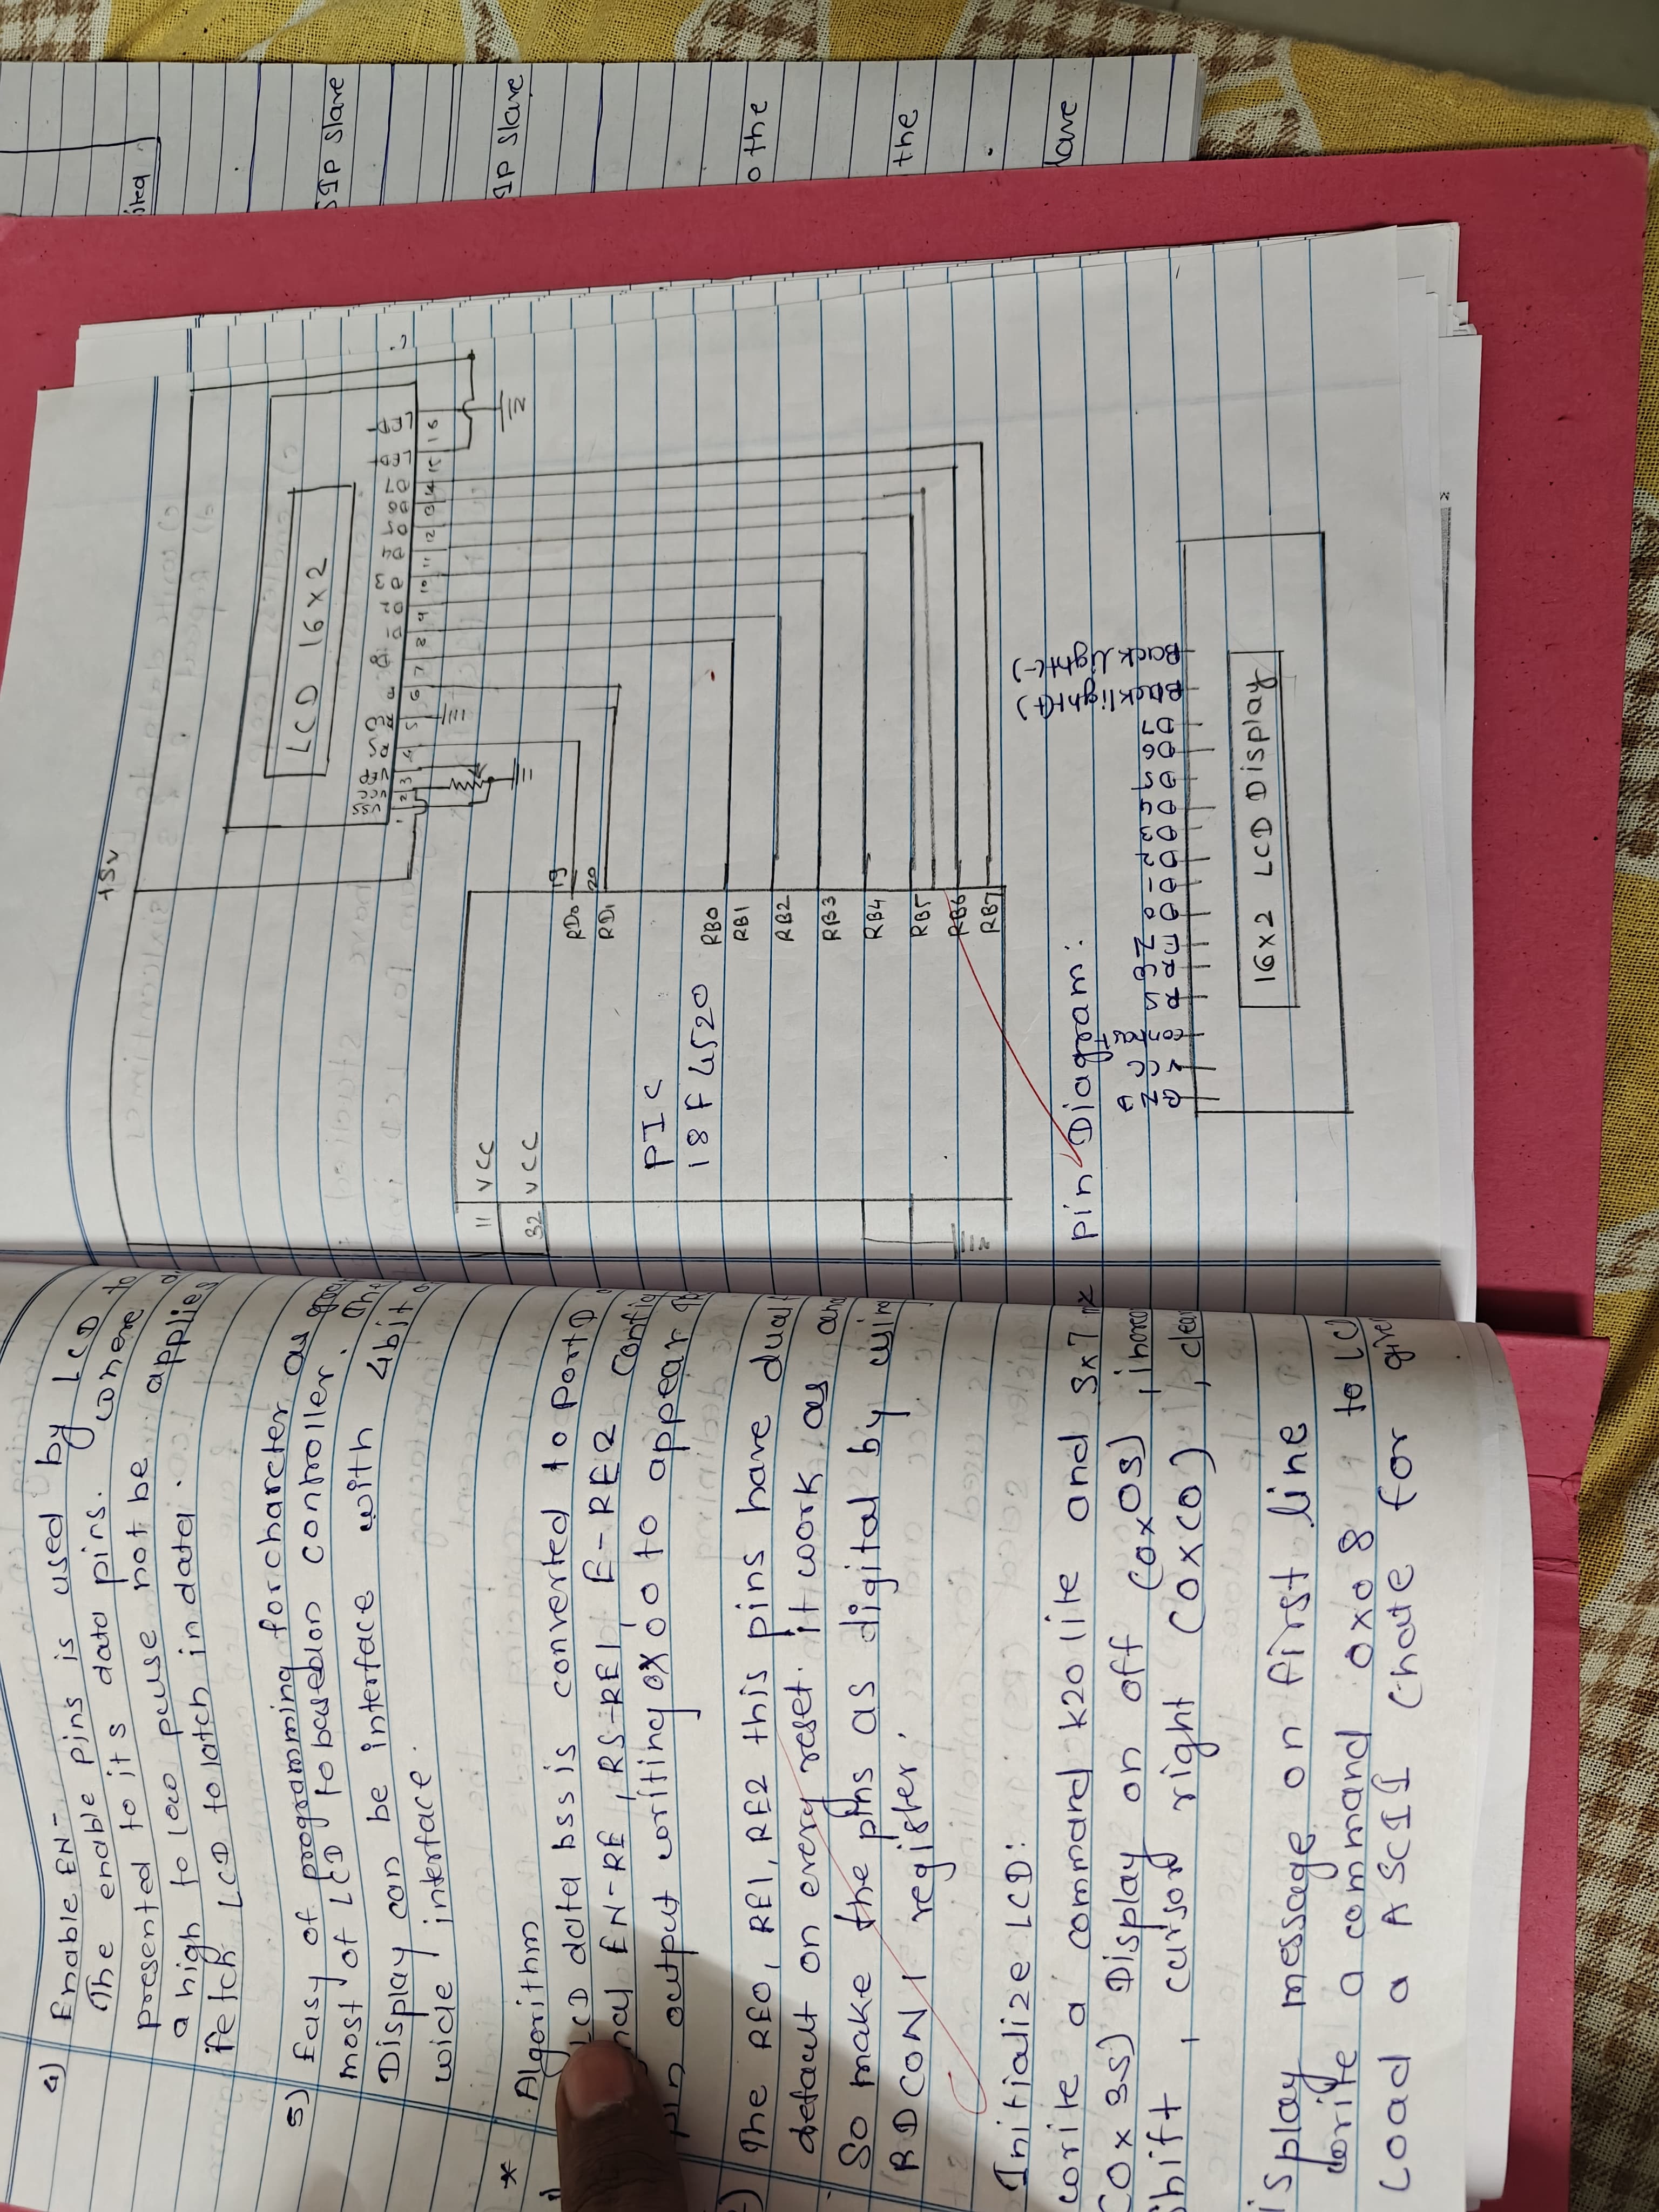 4) Enable EN-
The enable pins is used by LCD to
presented to it's data pins. where
a high to low pulse not be applies
fetch LCD to latch in data.
5) Easy of programming for charcter as
most of LCD to based on controller. The
Display can be interface with 4bit
wide / interface.
* Algorithm
LCD data bss is converted to port D
EN-RE, RS-RE1, E-RE2 Config
pin output writing 0x00 to appear
The RE0, RE1, RE2 this pins have dual
default on every reset. it work as
So make the pins as digital by
ADCON1 register.
Initialize LCD:
write a command k20 lite and 5x7
(0x35) Display on off (0x0S)
shift, cursor right (0xC0), clear
Display message on first line
write a command 0x08 to LC
Load a ASCII (hate for
+5V
LCD 16x2
VSS VCC
1 2 3 4 5 6 7 8 9 10 11 12 13 14 15 16
11 VCC
32 VCC
RD0 19
RD1 20
PIC
18F4520
RB0
RB1
RB2
RB3
RB4
RB5
RB6
RB7
* pin Diagram:
GND
VCC
RS
RW
EN
D0
D1
D2
D3
D4
D5
D6
D7
Backlight(+)
Backlight(-)
16x2 LCD Display
SIP slave
IP slave
o the
the